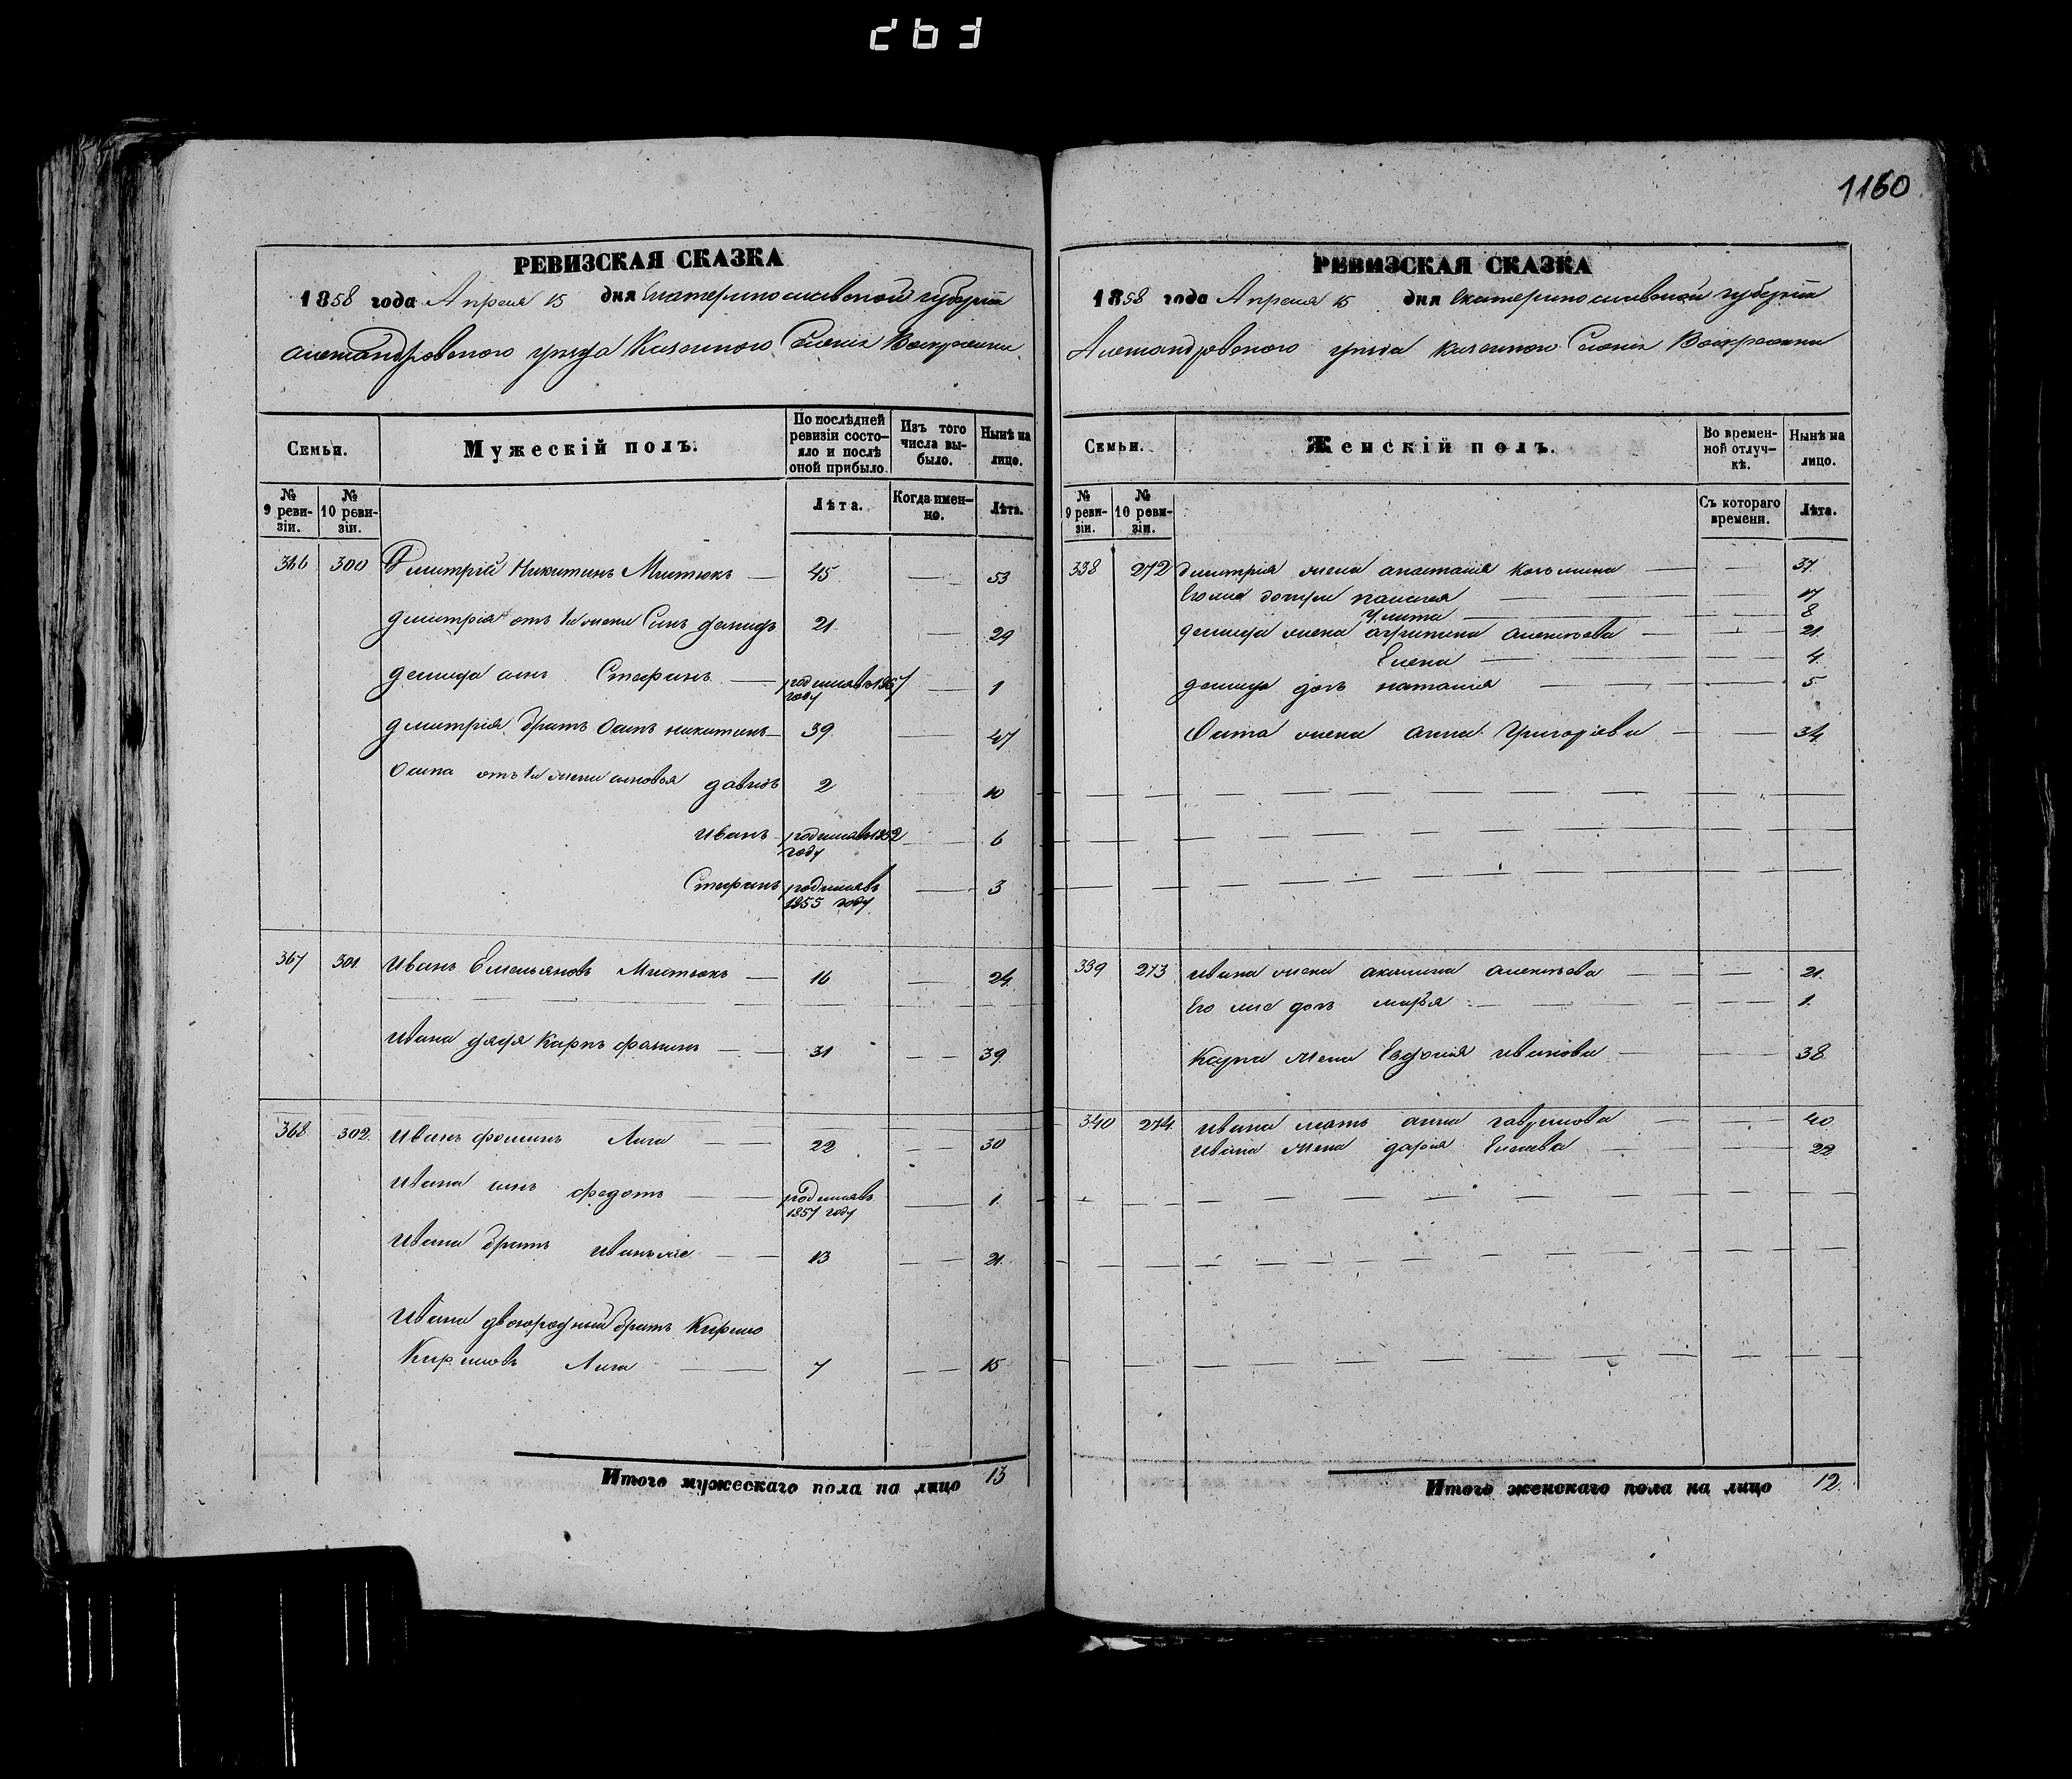 1160
РЕВИЗСКАЯ СКАЗКА
1858 года Апреля 15 дня Екатеринославской губерніи
Александровского уезда Казенного Селенія Воскресенки
Семьи.
Мужескій полъ.
По послѣдней ревизіи состояло и послѣ оной прибыло.
Изъ того числа выбыло.
Нынѣ на лицо.
№ 9 ревизіи.
№ 10 ревизіи.
Лѣта.
Когда именно.
Лѣта.
366 300 Дмитрій Никитинъ — 45 — 53
Дмитрія отъ 1й жены Сынъ Демидъ 21 — 29
Демида сынъ Стефанъ — родился въ 1857 году — 1
Дмитрія братъ Осипъ Никитинъ — 39 — 47
Осипа отъ 1й жены сыновья Давидъ 2 — 10
Иванъ родился въ 1852 году — 6
Стефанъ родился въ 1855 году — 3
367 301. Иванъ Емельяновъ — 16 — 24.
Ивана дядя Карпъ — 31 — 39.
368. 302. Иванъ Фоминъ Лига — 22 — 30
Ивана сынъ Федотъ — родился въ 1857 году — 1.
Ивана братъ Иванъ же — 13 — 21.
Ивана двоюродный братъ Кирило
Кириловъ Лига — 7 — 15
Итого мужескаго пола на лицо 13
РЕВИЗСКАЯ СКАЗКА
1858 года Апреля 15 дня Екатеринославской губерніи
Александровского уезда казенного Селенія Воскресенки
Семьи.
Женскій полъ.
Во временной отлучкѣ.
Нынѣ на лицо.
№ 9 ревизіи.
№ 10 ревизіи.
Съ котораго времени.
Лѣта.
338 272 Дмитрія жена Анастасія — 37.
Его же дочери — 17
Улита — 8
Демида жена Алексѣева — 21.
Елена — 4.
Демида дочь Наталія — 5.
Осипа жена Анна Григорьева — 34.
339 273 Ивана жена Акилина Алексѣева — 21.
Его же дочь Марья — 1.
Карпа жена Евдокія Иванова — 38.
340 274. Ивана мать Анна Гаврилова — 40.
Ивана жена Дарія — 22.
Итого женскаго пола на лицо 12.